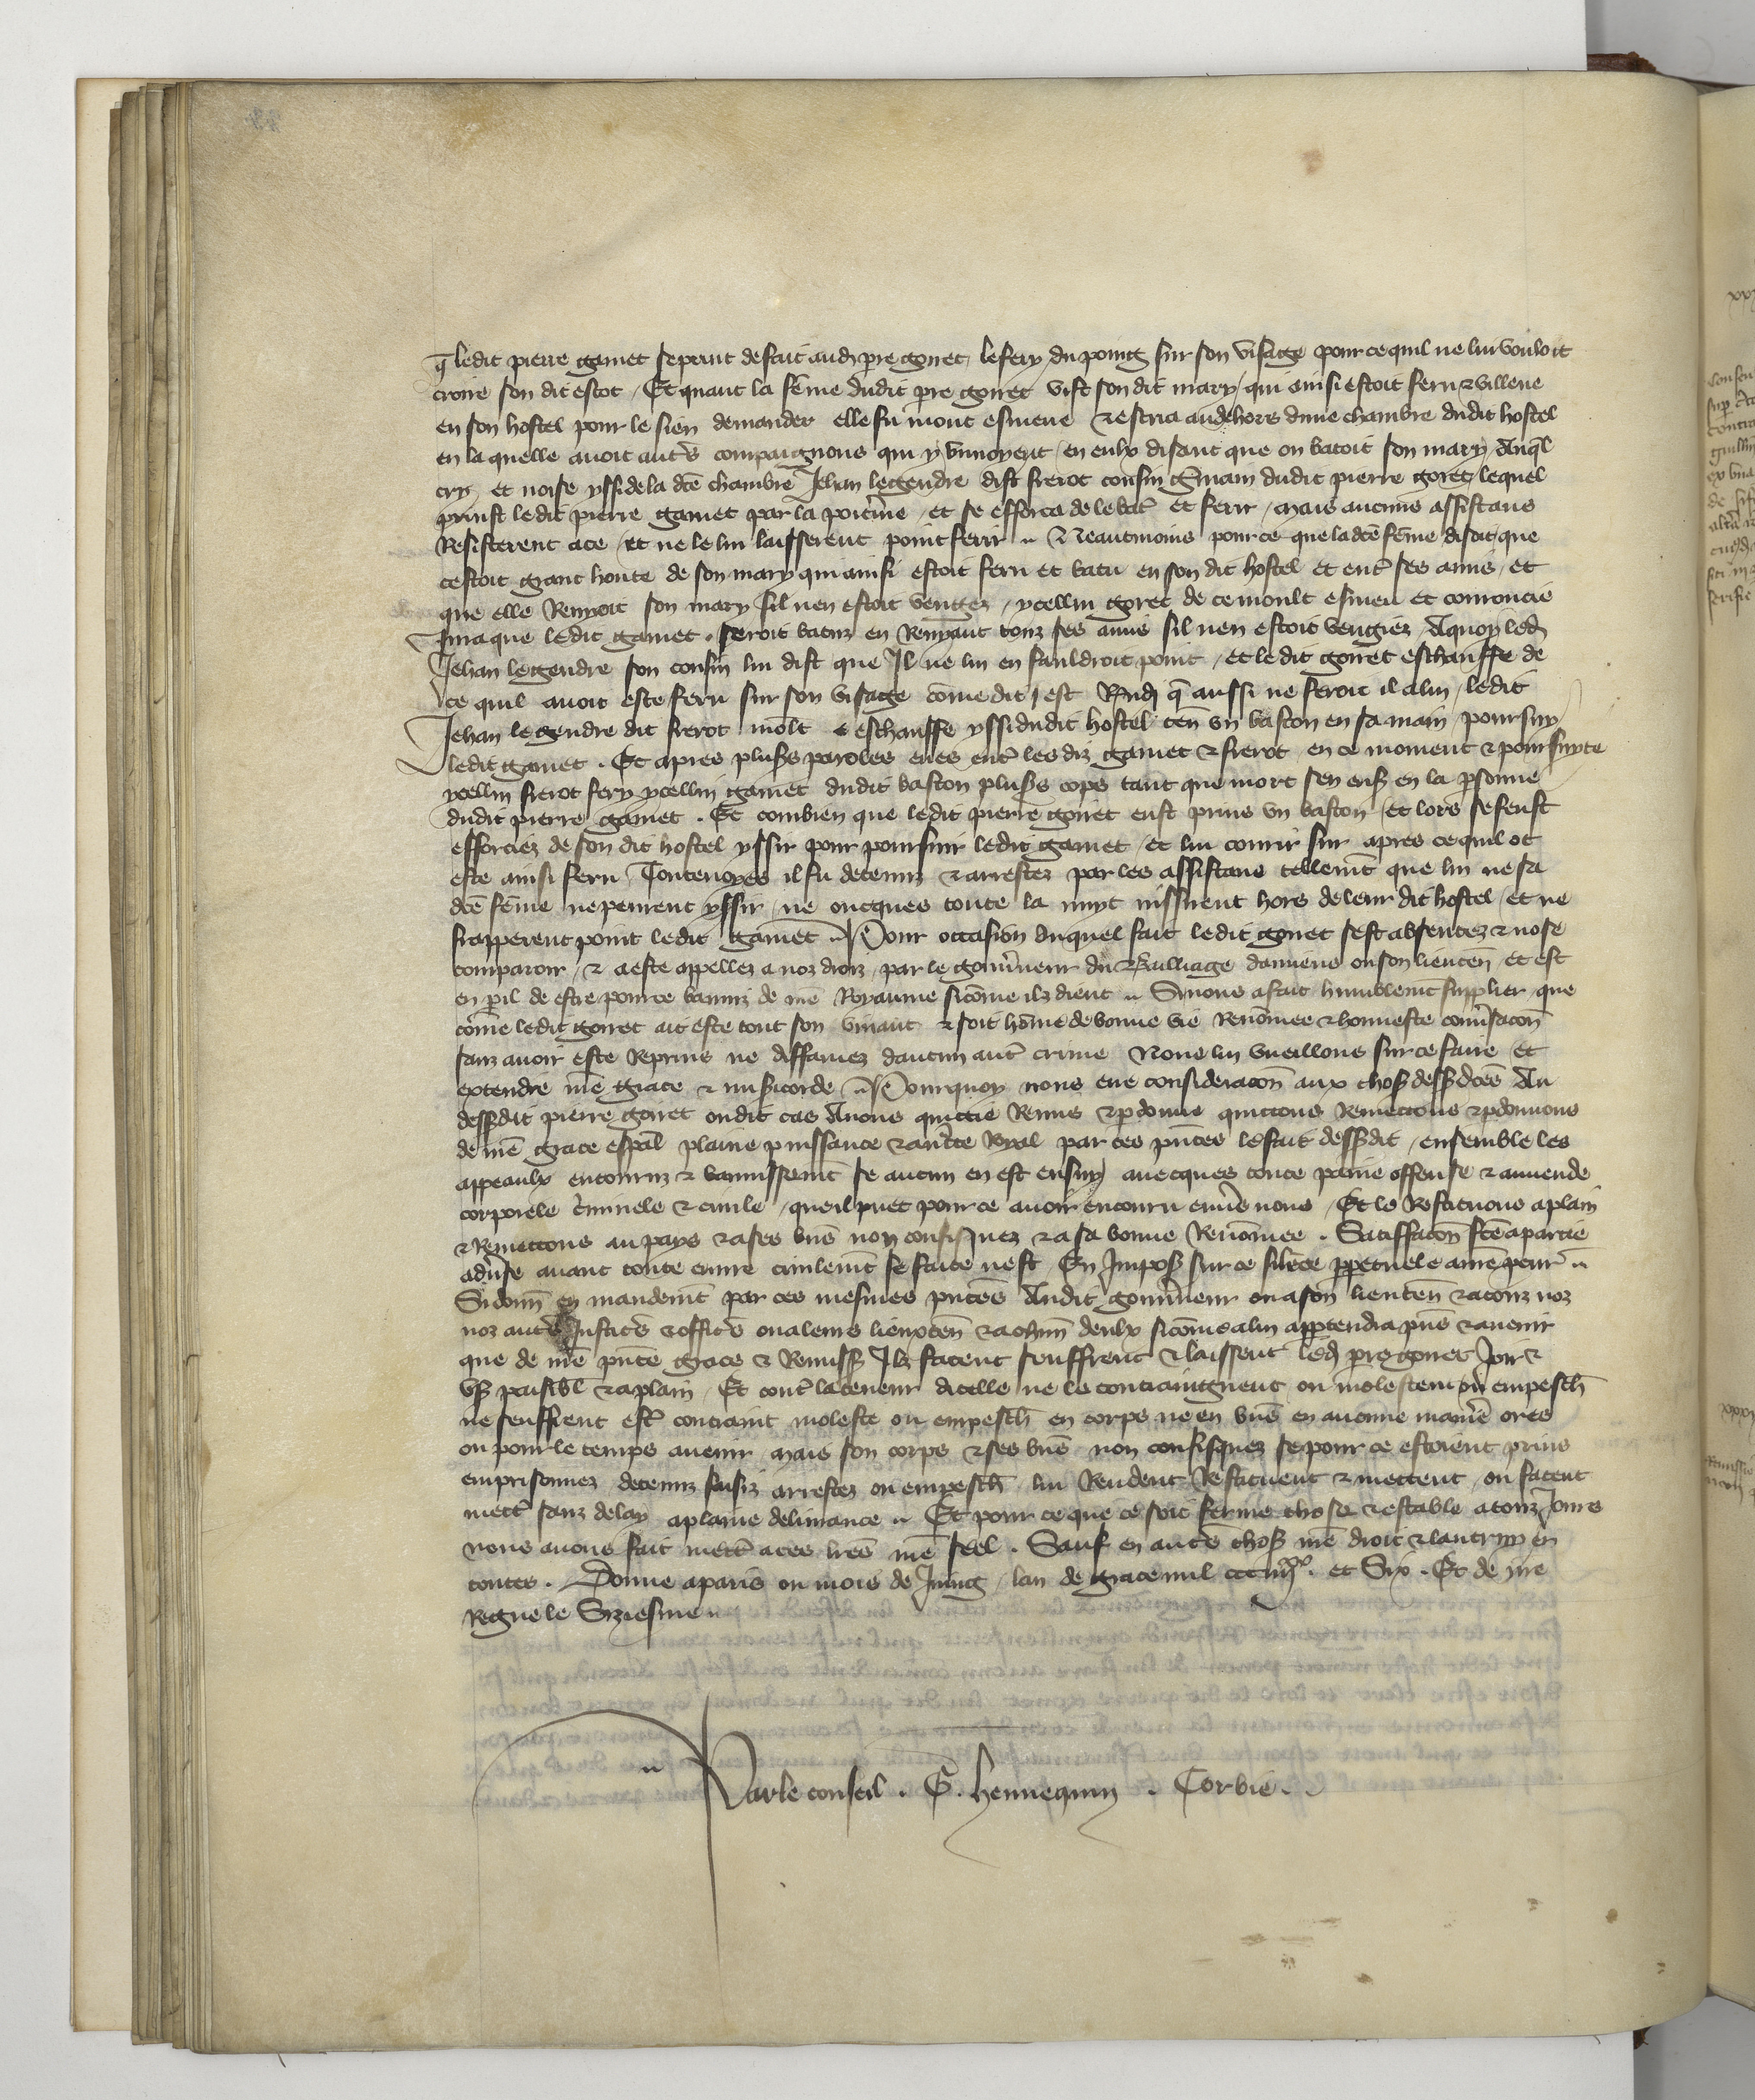 q̄ ledit pierre gamet se print de fait aud pre goret, le fery du poing sur son visage pour ce quil ne lui vouloit
croire son dit escot / Et quant la fēme dudit pre goret vist son dit mary / qui ainsi estoit feru & villene
en son hostel pour le sien demander elle fu mout esmeue & escria au dehors dune chambre dudit hostel
en la quelle avoit autˢ compaignons qui y buvoyent / en eulx disant que on batoit son mary / Auql̄
cry et noise yssi de la dcē chambre Jehan legendre dist frerot cousin Gmain dudit pierre goret / lequel
prinst ledit pierre gamet par la poictrine / et se efforca de le batr̄ et ferir / mais aucuns assistans
Resisterent a ce / et ne le lui laisserent point ferir .. Neantmoins pour ce que la dcē fēme disoit / que
cestoit grant honte de son mary qui ainsi estoit feru et batu en son dit hostel et entr̄ ses amis / et
que elle Renyoit son mary sil nen estoit vengez / ycellui goret de ce moult esmeu et courroucie
Jura que ledit gamet . seroit batuz en Renyant touz ses amis sil nen estoit vengiez / A quoy led
Jehan legendre son cousin lui dist que Il ne lui en fauldroit point / et le dit goret eschauffe de
ce quil avoit este feru sur son visage cōme dit est Rnd q̄ aussi ne feroit il a lui / ledit
Jehan le gendre dit frerot molt eschauffe yssi dudit hostel ten̄ un baston en sa main / poursuy
ledit gamet . Et apres plus's paroles eues entr̄ les diz gamet & frerot en ce moment & poursuyte
ycellui frerot fery ycellui gamet dudit baston plus's cops tant que mort sen ens en la psonne
dudit pierre gamet . Et combien que ledit pierre goret eust prins un baston et lors se feust
efforciez de son dit hostel yssir pour poursuir ledit gamet et lui courir sur apres ce quil ot
este ainsi feru / Toutevoyes il fu detenuz & arrestez par les assistans tellemt̄ que lui ne sa
dcē fēme ne peurent yssir / ne oncques toute la nuyt nissirent hors de leur dit hostel / et ne
frapperent point ledit gamet .. Pour occasion duquel fait ledit goret sest absentez & nose
comparoir / & a este appellez a noz droiz / par le gouv̄neur du Bailliage damiens ou son lieuten̄ / et est
en pīl de estre pour ce banniz de nrē Royaume sicōme ilz dient .. Si nous a fait humblemt supplier / que
cōme ledit goret ait este tout son vivant & soit hōme de bonne vie Renōmee & honneste conv̄sacon̄
sanz avoir este Reprins ne diffamez daucun autr̄ crime Nous lui vueillons sur ce faire et
extendre nrē grace & misicorde .. Pourquoy nous eue consideracon̄ aux chos dess' dcēs Au
dess'dit pierre goret ou dit cas Avons quictie Remis & pdonne quictons Remectons & pdonnons
de nrē grace espal̄ plaine puissance & aucte Royal par ces pn̄tes le fait dess'dit / ensemble les
appeaulx encouruz & bannissemt̄ se aucun en est ensuy avecques toute paine offense & amende
corporele c'minele & civile / que il puet pour ce avoir encouru env's nous / Et le Restituons a plain
& Remectons au pays & a ses bn̄s non confisquez & a sa bonne Renōmee . Satiffacon̄ fcē a partie
adv̄se avant toute euvre civilemt̄ se faicte nest / En Impos sur ce silece ppetuele a nrē pcur̄ ..
Si donn̄ en mandemt̄ par ces mesmes pn̄tes Audit gouv̄neur ou a son lieuten̄ & a touz noz
noz autr̄s Justicˢ & officˢ ou a leurs lieuxten̄ & a chun̄ deulx sicōme a lui apptendra / pn̄s & avenir
que de nrē pn̄te grace & Remiss Ilz facent seuffrent & laissent led pre goret Joir &
us' paisibl̄ & a plain / Et contr̄ la teneur dicelle ne le contraingnent ou molestent ou empesch̄
ne seuffrent estr̄ contraint moleste ou empesch̄ en corps ne en bn̄s en aucune man̄e ores
ou pour le temps avenir / mais son corps & ses bn̄s non confisquez se pour ce estoient prins
emprisonnez detenuz saisiz arrestez ou empesch̄ lui Rendent Restituent & mectent / ou facent
mectr̄ sanz delay a plaine delivrance .. Et pour ce que ce soit ferme chose & estable a touz Jours
nous avons fait mectr̄ a ces lrēs nrē seel . Sauf en autˢ chos nrē droit & lautruy en
toutes . Donne a paris ou mois de Juing / lan de grace mil ccc iiijˣˣ . et Six . Et de nrē
Regne le Siziesme ..
Par le conseil . G. hennequin . Corbie .